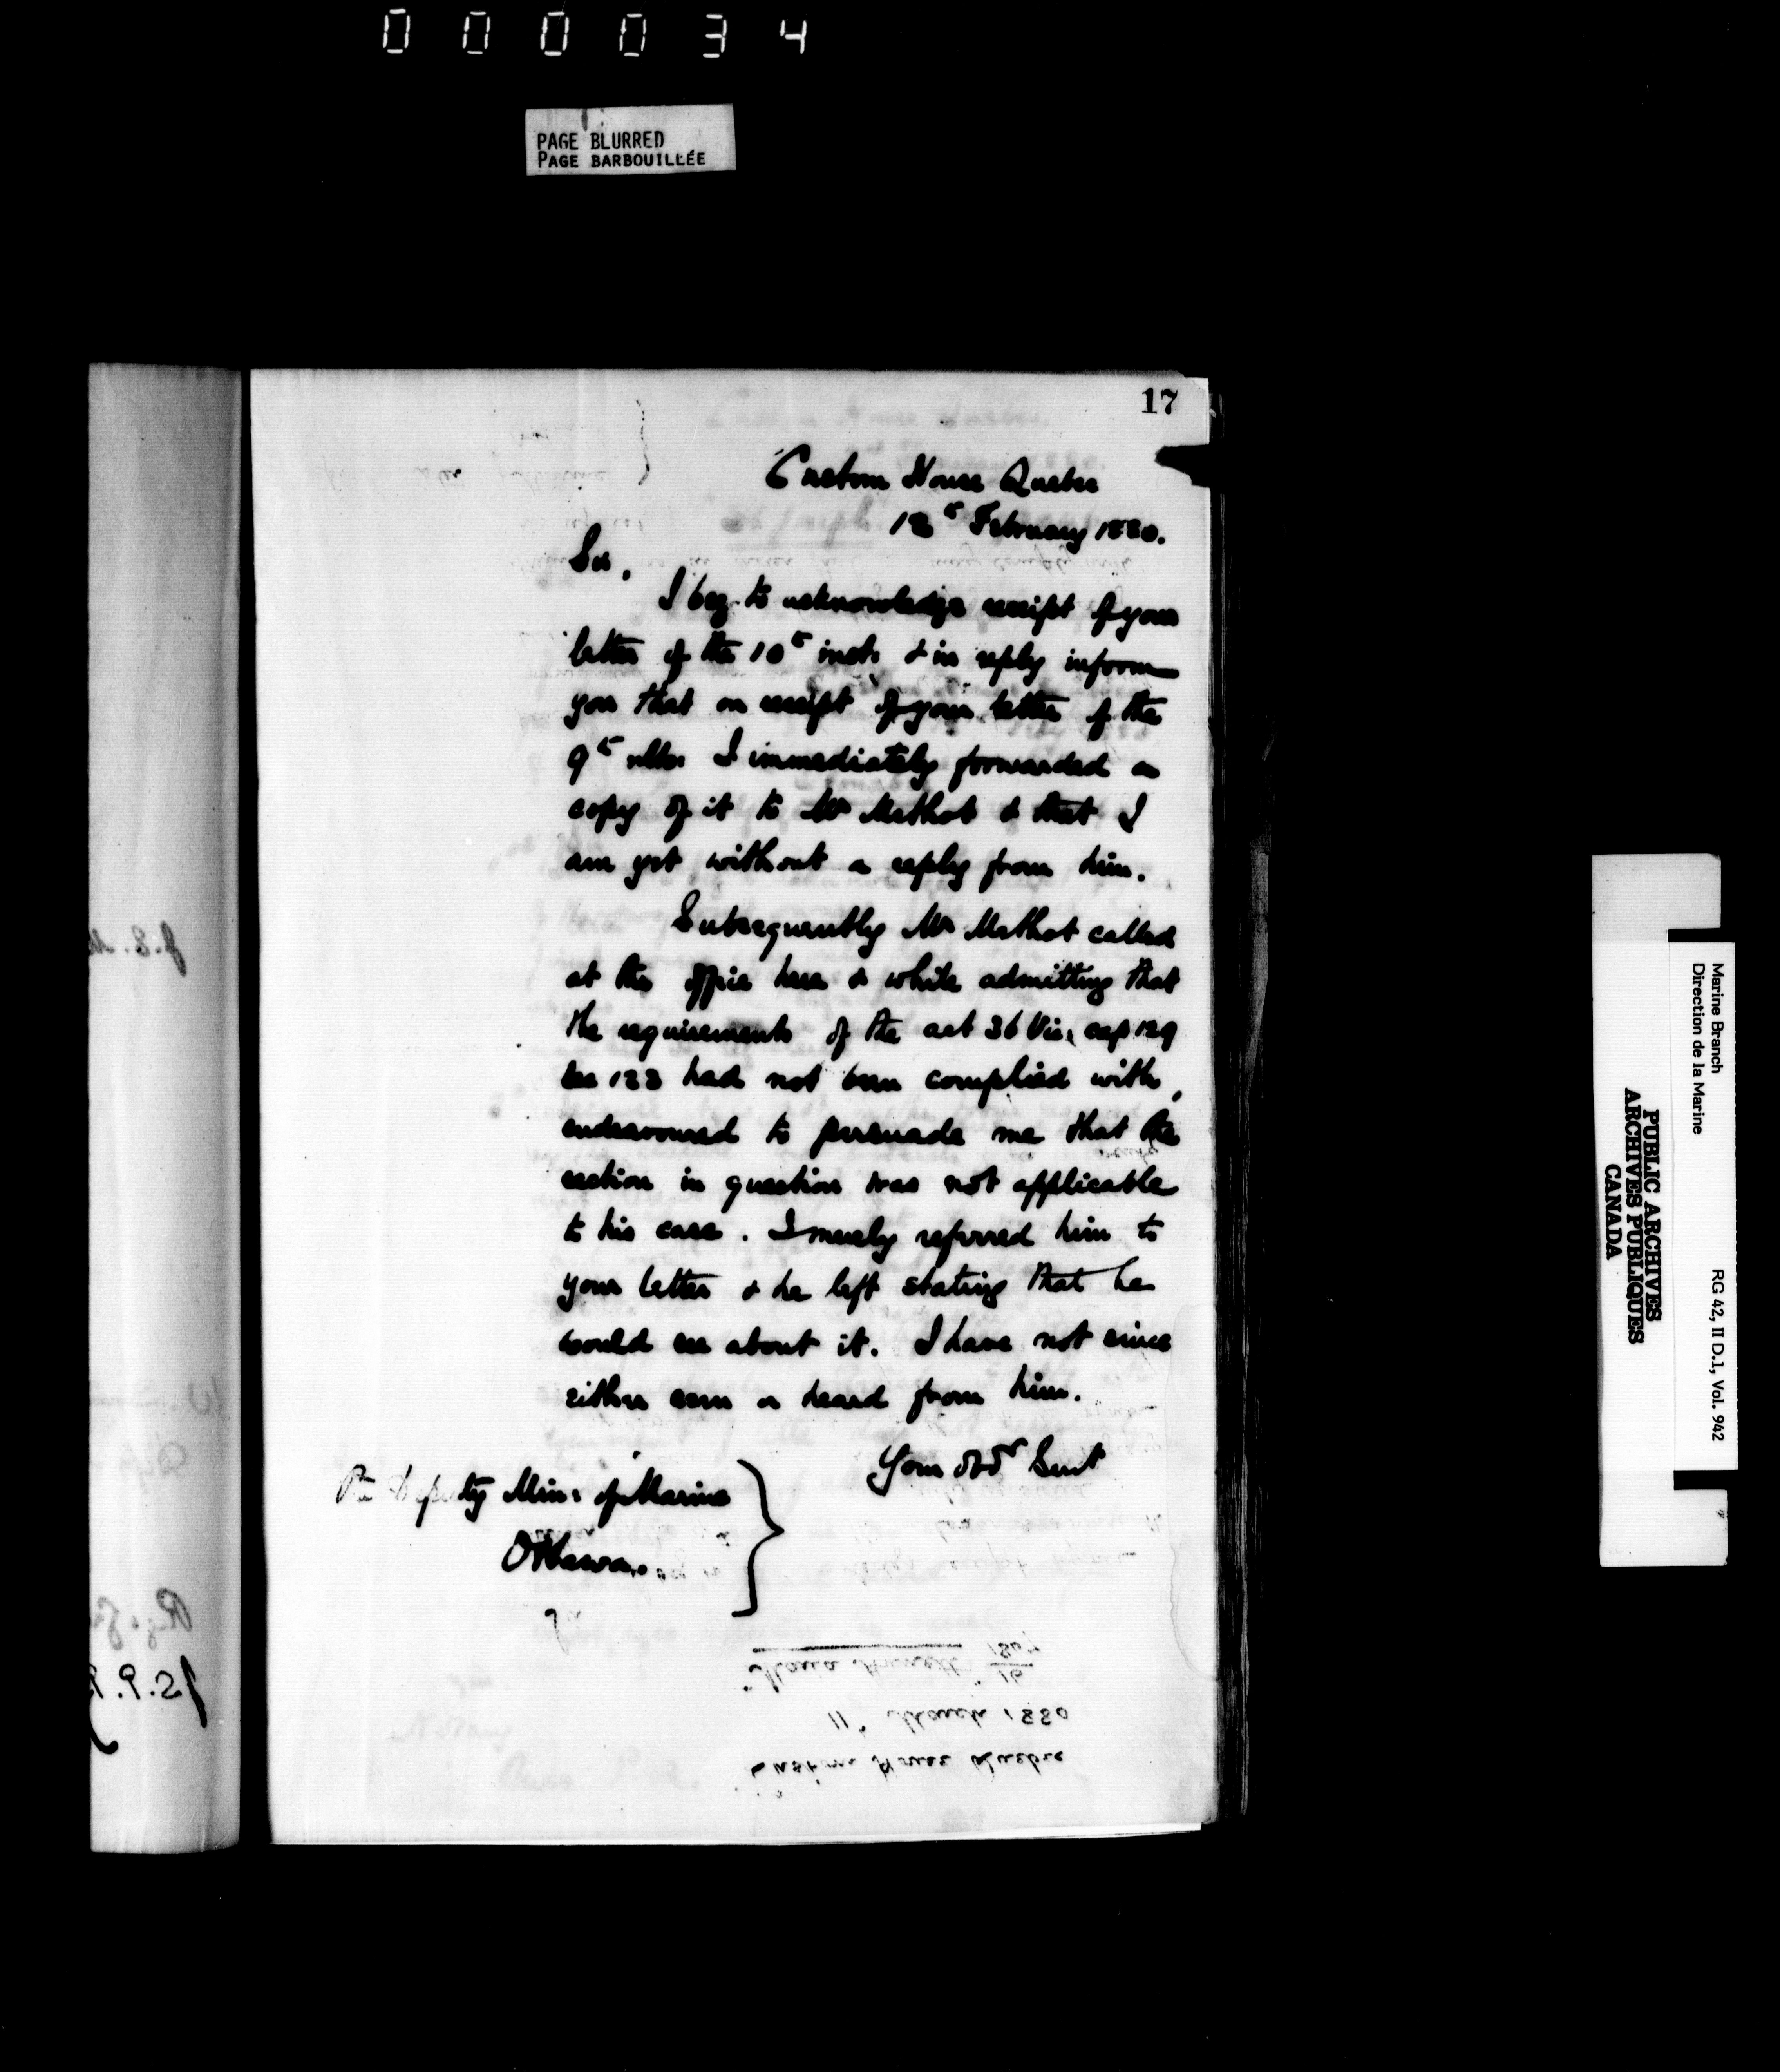 000034
PAGE BLURRED
PAGE BARBOUILLÉE
17
Custom House Quebec
12th February 1880.
Sir,
I beg to acknowledge receipt of your
letter of the 10th inst. & in reply inform
you that on receipt of your letter of the
9th ulto. I immediately forwarded a
copy of it to Mr Methot & that I
am yet without a reply from him.
Subsequently Mr Methot called
at the office here & while admitting that
the requirements of the act 36 Vic. cap 129
sec 122 had not been complied with,
endeavoured to persuade me that the
section in question was not applicable
to his case. I merely referred him to
your letter & he left stating that he
would see about it. I have not since
either seen or heard from him.
Your obdt Servt
The Deputy Min: of Marine
Ottawa.
Custom House Quebec
11th March 1880
Marine Branch
Direction de la Marine
RG 42, II D.1, Vol. 942
PUBLIC ARCHIVES
ARCHIVES PUBLIQUES
CANADA